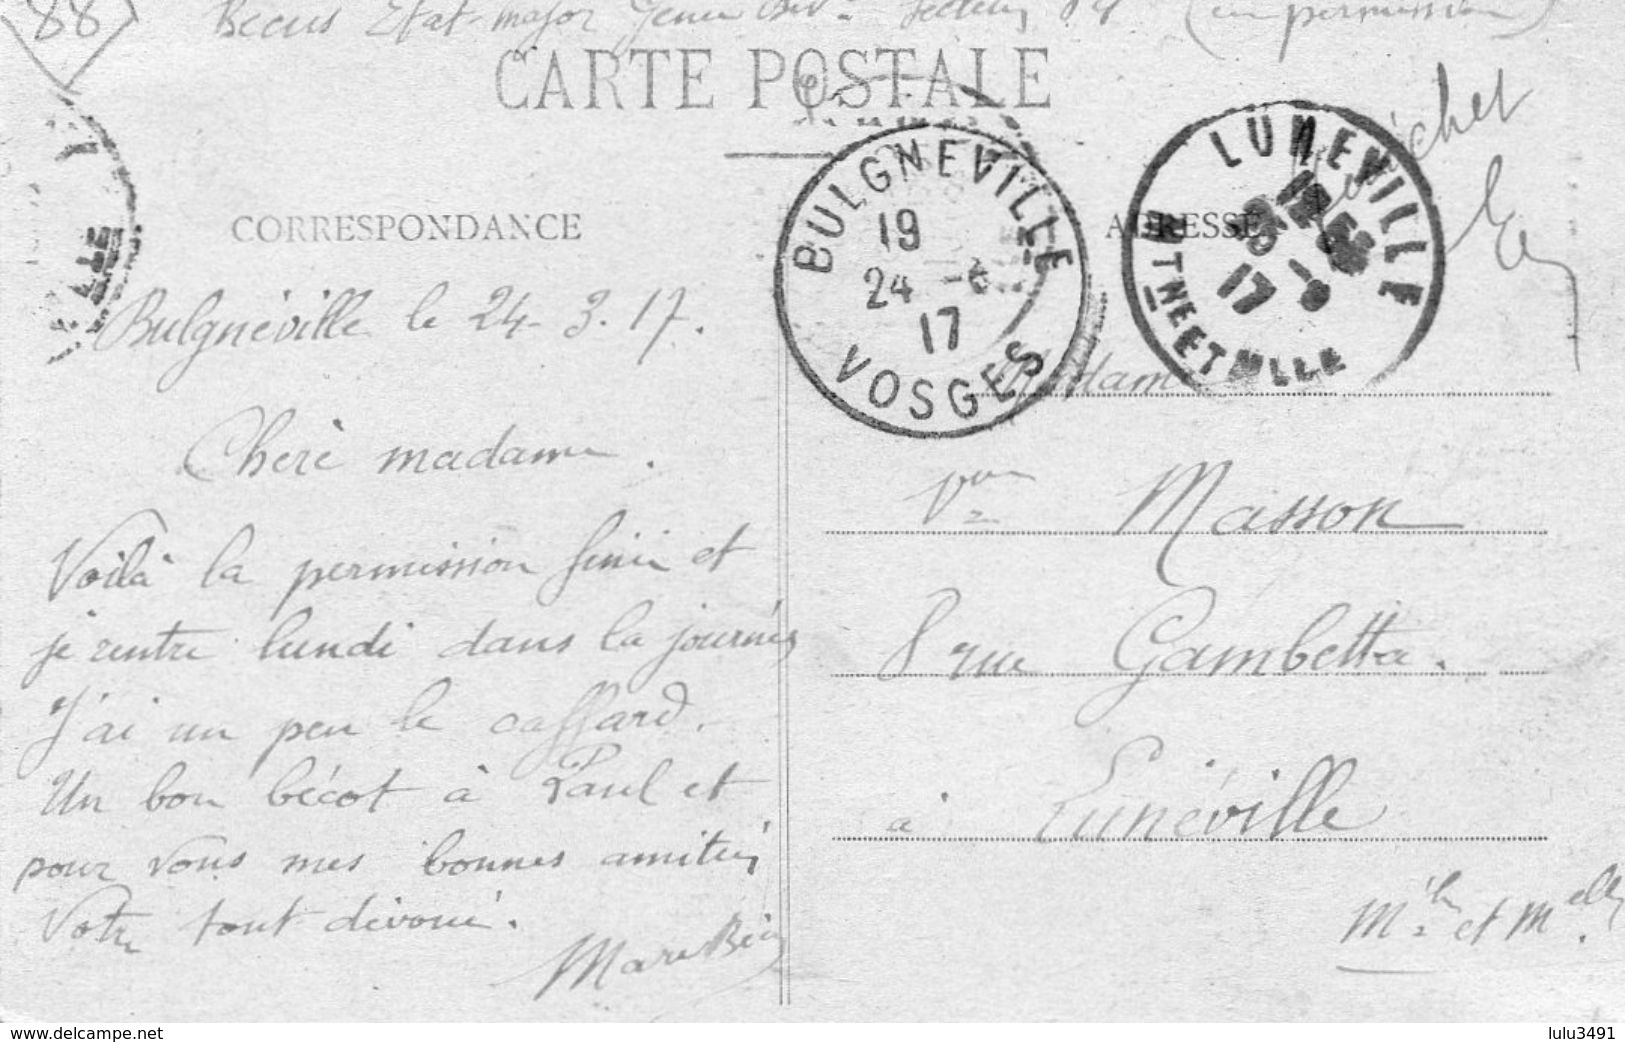 88
Becus Etat-major (en permission)
CARTE POSTALE
CORRESPONDANCE
ADRESSE
BULGNEVILLE
19
24 -3
17
VOSGES
LUNEVILLE
17
MTHE ET MLLE
Bulgnéville le 24-3.17.
Chère madame.
Voilà la permission finie et
je rentre lundi dans la journée
J'ai un peu le caffard.
Un bon bécot à Paul et
pour vous mes bonnes amitiés
Votre tout dévoué.
Madame
Masson
8 rue Gambetta.
à Lunéville
Mthe et Melle
www.delcampe.net
lulu3491